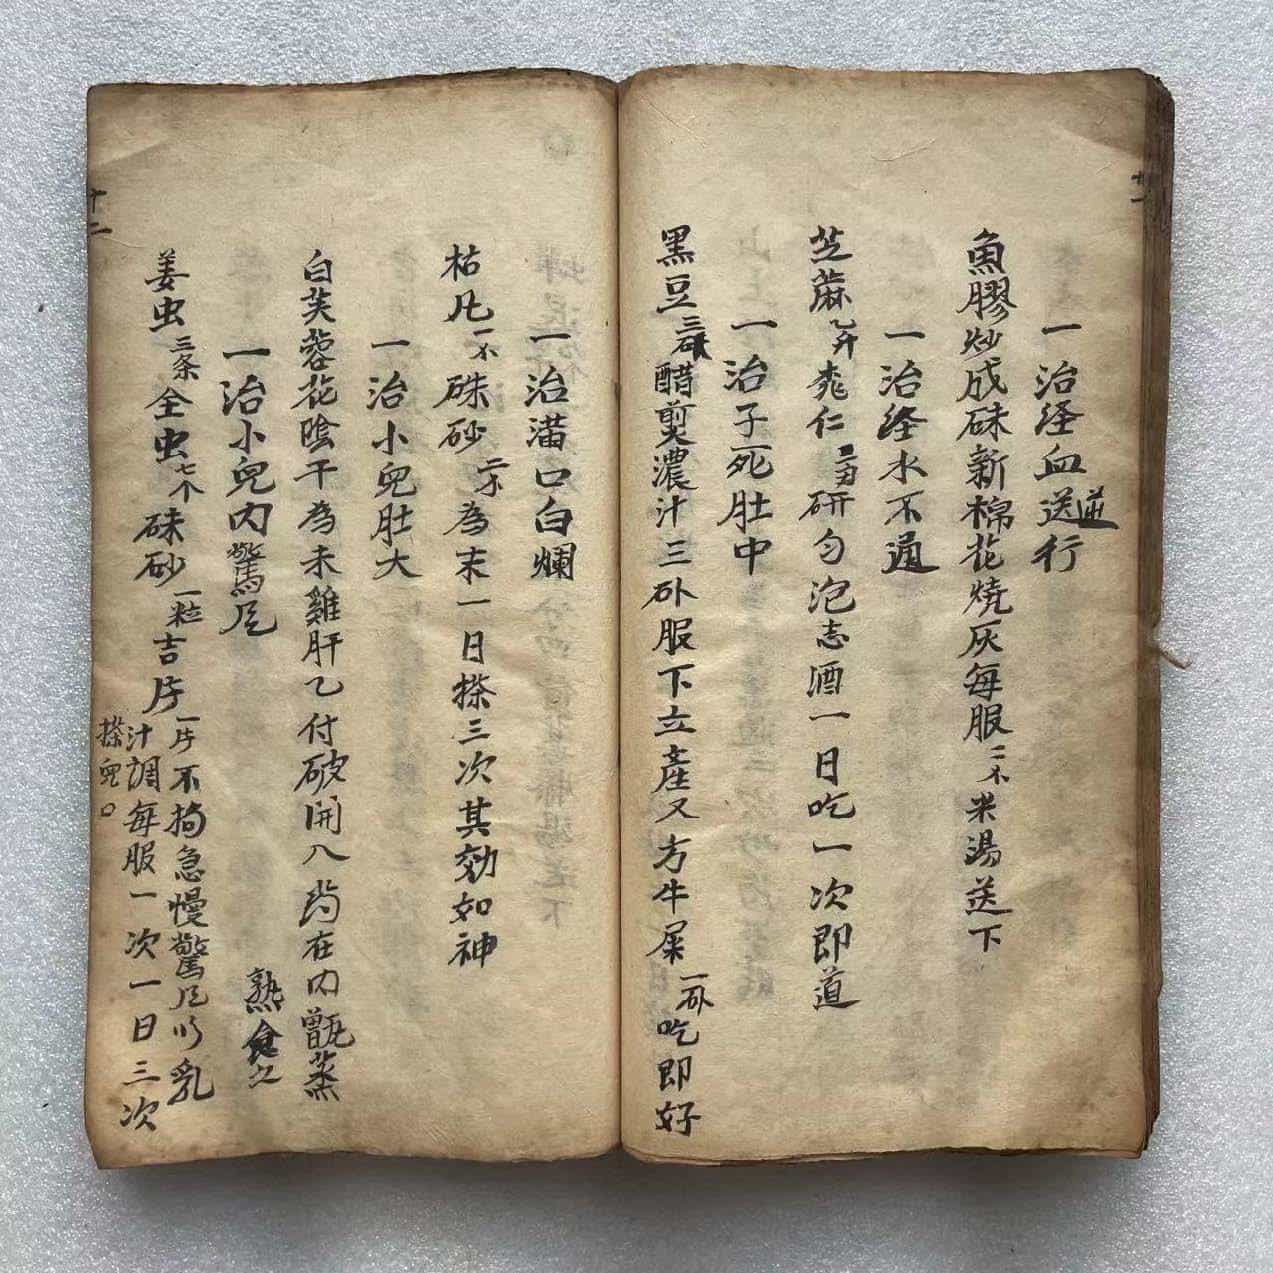 一治经血送行
魚膠炒成硃新棉花燒灰每服二不米湯送下
一治经水不通
芝蔴乙升 仁 研匀泡 酒一日吃一次即道
一治子死肚中
黑豆三 醋煎濃汁三 服下立產又方牛屎一 吃即好
一治满口白爛
枯凡一不硃砂二 為末一日搽三次其効如神
一治小兒肚大
白芙蓉花陰干為末雞肝乙付破開入药在内甑蒸
熟食之
一治小兒内驚尺
姜虫三条全虫七个硃砂一粒吉 一片不拘急慢驚尺以乳
汁調每服一次一日三次
搽兒口
十二